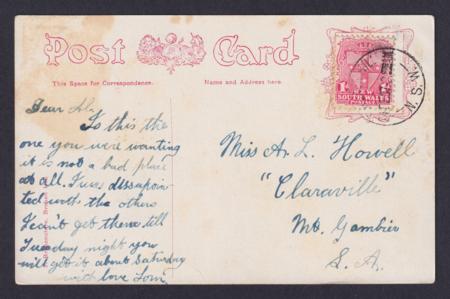 Post Card
This Space for Correspondence.
Name and Address here.
1D
NEW
SOUTH WALES
POSTAGE
N.S.W.
Dear
Is this the
one you were wanting
it is not a bad place
at all. I was dissapoin
ted with the others
I can't get them till
Tuesday night you
will get it about Saturday
with love
Miss A. L. Howell
"Claraville"
Mt. Gambier
S. A.